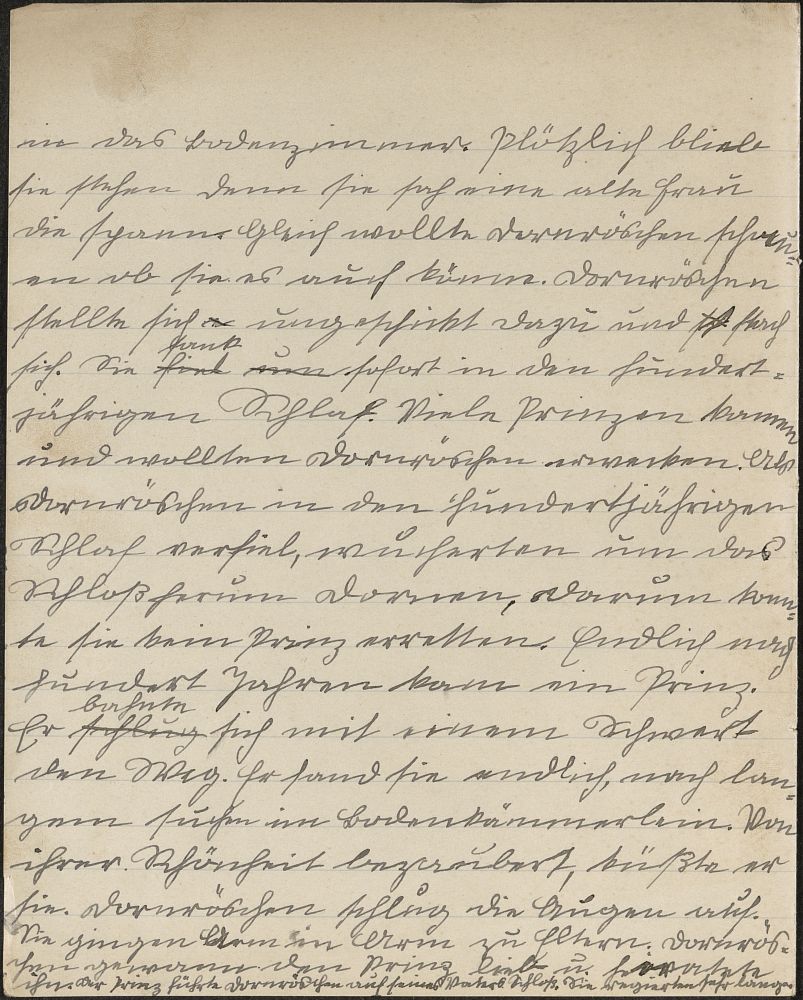 in das Bodenzimmer. Plötzlich blieb
sie stehen denn sie sah eine alte Frau
die spann. Gleich wollte Dornröschen schau-
en ob sie es auch könne. Dornröschen
stellte sich ungeschickt dazu und stach
sank
sich. Sie fiel um sofort in den hundert-
jährigen Schlaf. Viele Prinzen kamen
und wollten Dornröschen erwecken. Als
Dornröschen in den hundertjährigen
Schlaf verfiel, wucherten um das
Schloß herum Dornen, darum konn-
te sie kein Prinz erretten. Endlich nach
hundert Jahren kam ein Prinz.
bahnte
Er schlug sich mit einem Schwert
den Weg. Er fand sie endlich, nach lan-
gem suchen im Bodenkämmerlein. Von
ihrer Schönheit bezaubert, küßte er
sie. Dornröschen schlug die Augen auf.
Sie gingen Arm in Arm zu Eltern. Dornrös-
chen gewann den Prinz lieb u. heiratete
ihn. Der Prinz führte Dornröschen auf seines Vaters Schloß. Sie regierten sehr lange.